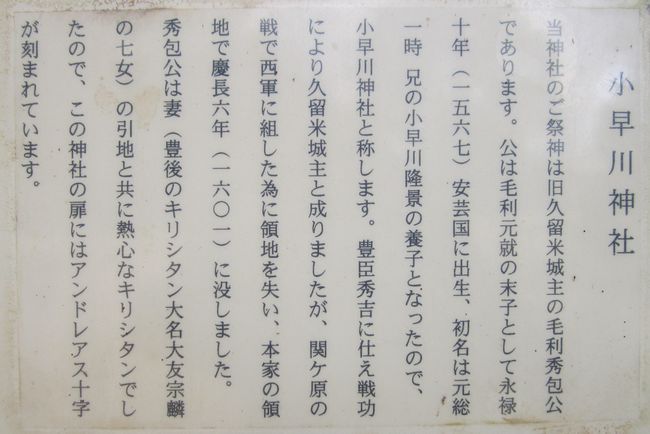 小早川神社
当神社のご祭神は旧久留米城主の毛利秀包公
であります。公は毛利元就の末子として永禄
十年（一五六七）安芸国に出生、初名は元総
一時 兄の小早川隆景の養子となったので、
小早川神社と称します。豊臣秀吉に仕え戦功
により久留米城主と成りましたが、関ケ原の
戦で西軍に組した為に領地を失い、本家の領
地で慶長六年（一六〇一）に没しました。
秀包公は妻（豊後のキリシタン大名大友宗麟
の七女）の引地と共に熱心なキリシタンでし
たので、この神社の扉にはアンドレアス十字
が刻まれています。